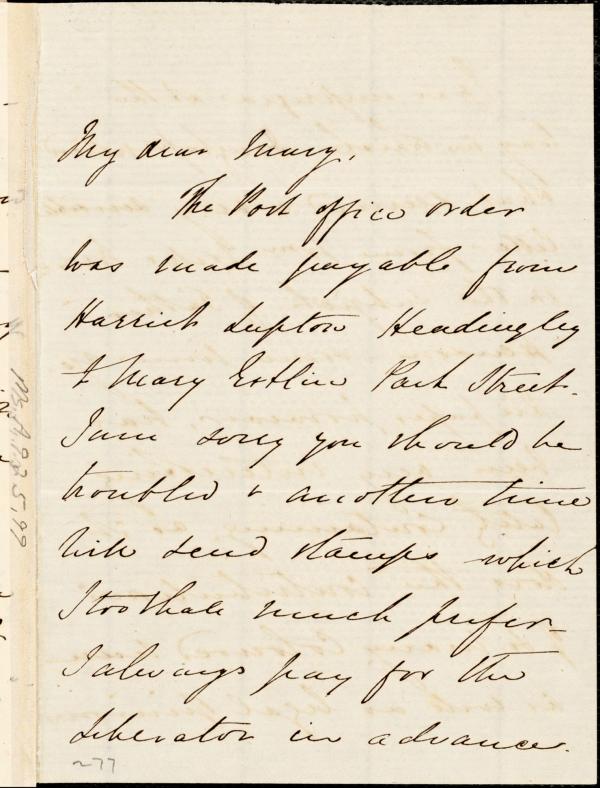 My dear Mary.
The Post office order
was made payable from
Harriet Lupton Headingley
to Mary Estlin Park Street.
I am sorry you should be
troubled & another time
will send stamps which
I too shall much prefer
I always pay for the
Liberator in advance.
~77